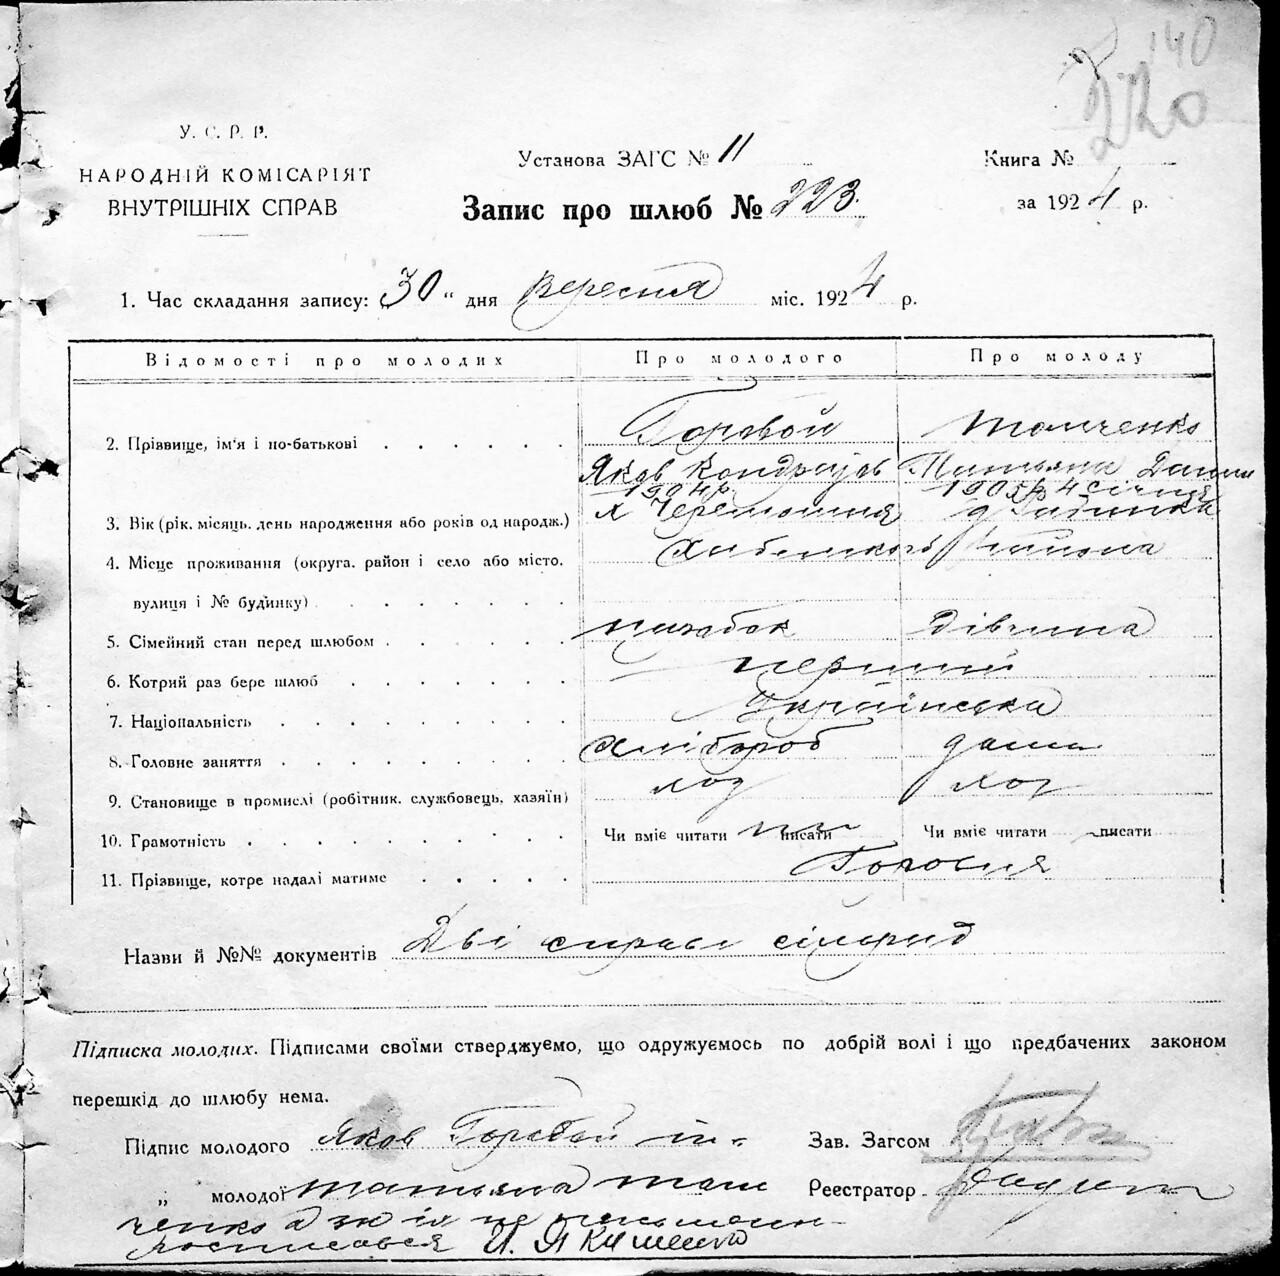 140
220
У. С. Р. Р.
НАРОДНІЙ КОМІСАРІЯТ
ВНУТРІШНІХ СПРАВ
Установа ЗАГС № 11
Запис про шлюб № 223.
Книга №
за 1924 р.
1. Час складання запису: 30 " дня Вересня міс. 1924 р.
Відомості про молодих Про молодого Про молоду
2. Прізвище, ім'я і по-батькові Горовой Томченко
Яков Кондратов Татьяна Данил
1904 р. 1905 р 4 січня
3. Вік (рік, місяць, день народження або років од народж.) х Черемошня
4. Місце проживання (округа, район і село або місто, района
вулиця і № будинку)
5. Сімейний стан перед шлюбом парубок дівчина
6. Котрий раз бере шлюб перший
7. Національність Українська
8. Головне заняття хлібороб дома
9. Становище в промислі (робітник, службовець, хазяїн)
10. Грамотність Чи вміє читати писати Чи вміє читати писати
11. Прізвище, котре надалі матиме Горовия
Назви й №№ документів Дві справі
Підписка молодих. Підписами своїми стверджуємо, що одружуємось по добрій волі і що предбачених законом
перешкід до шлюбу нема.
Підпис молодого Яков Горовой Зав. Загсом
„ молодої Татьяна Том Реєстратор
ченко а за їх не
росписовся И. Якименко